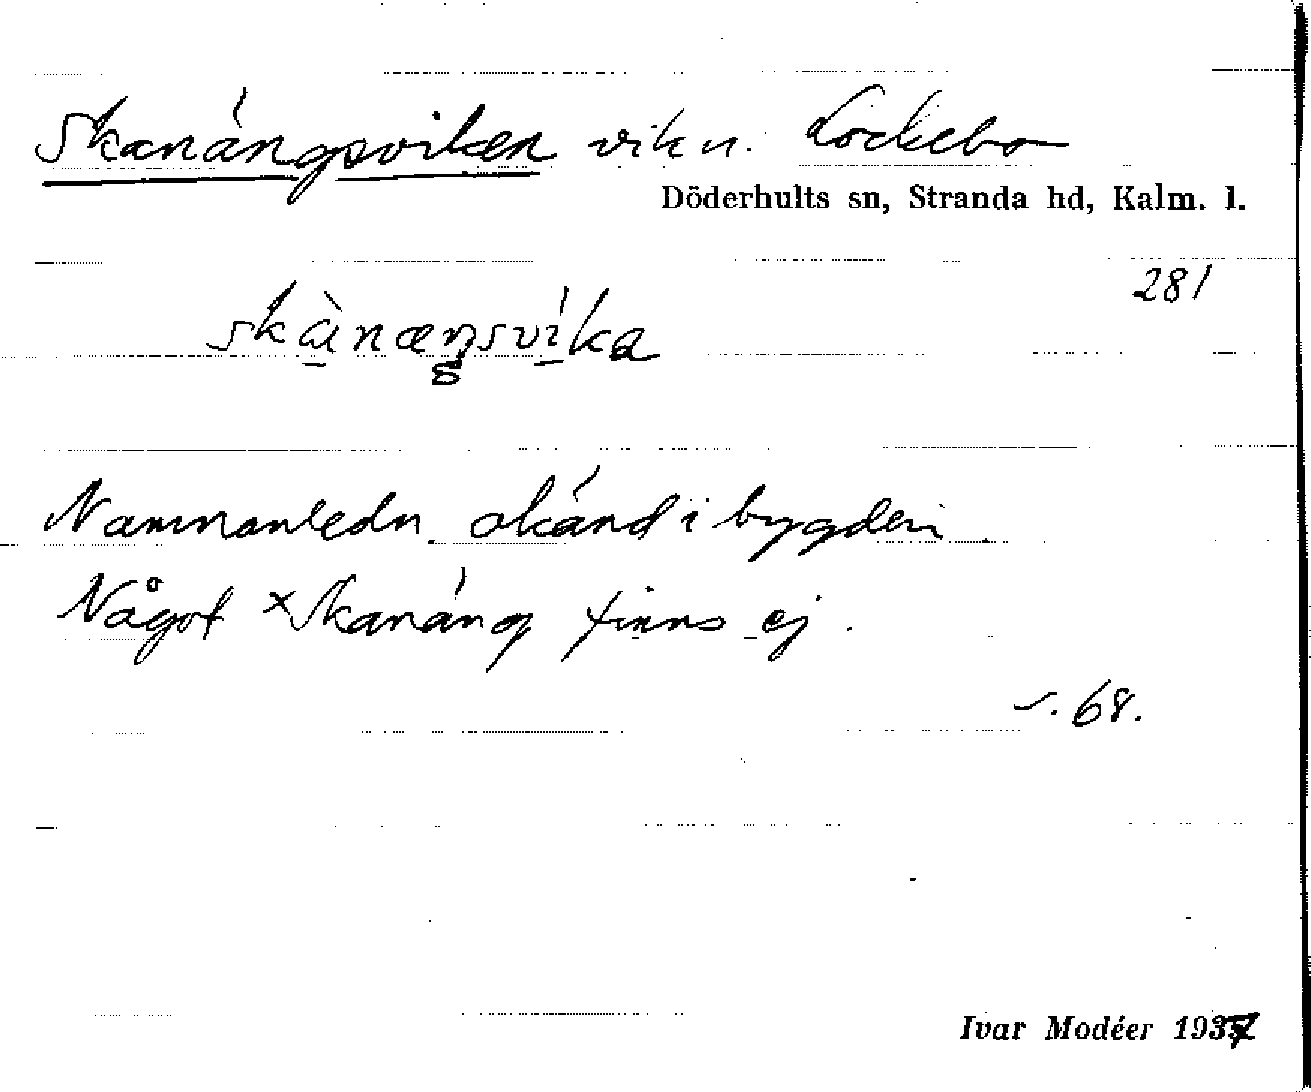 Skanängsviken vik n. Lockebo
Döderhults sn, Stranda hd, Kalm. l.
281
skànæŋsvíka
g
Namnanledn. okänd i bygden.
Något ×Skanäng finns ej.
s. 68.
Ivar Modéer 1937